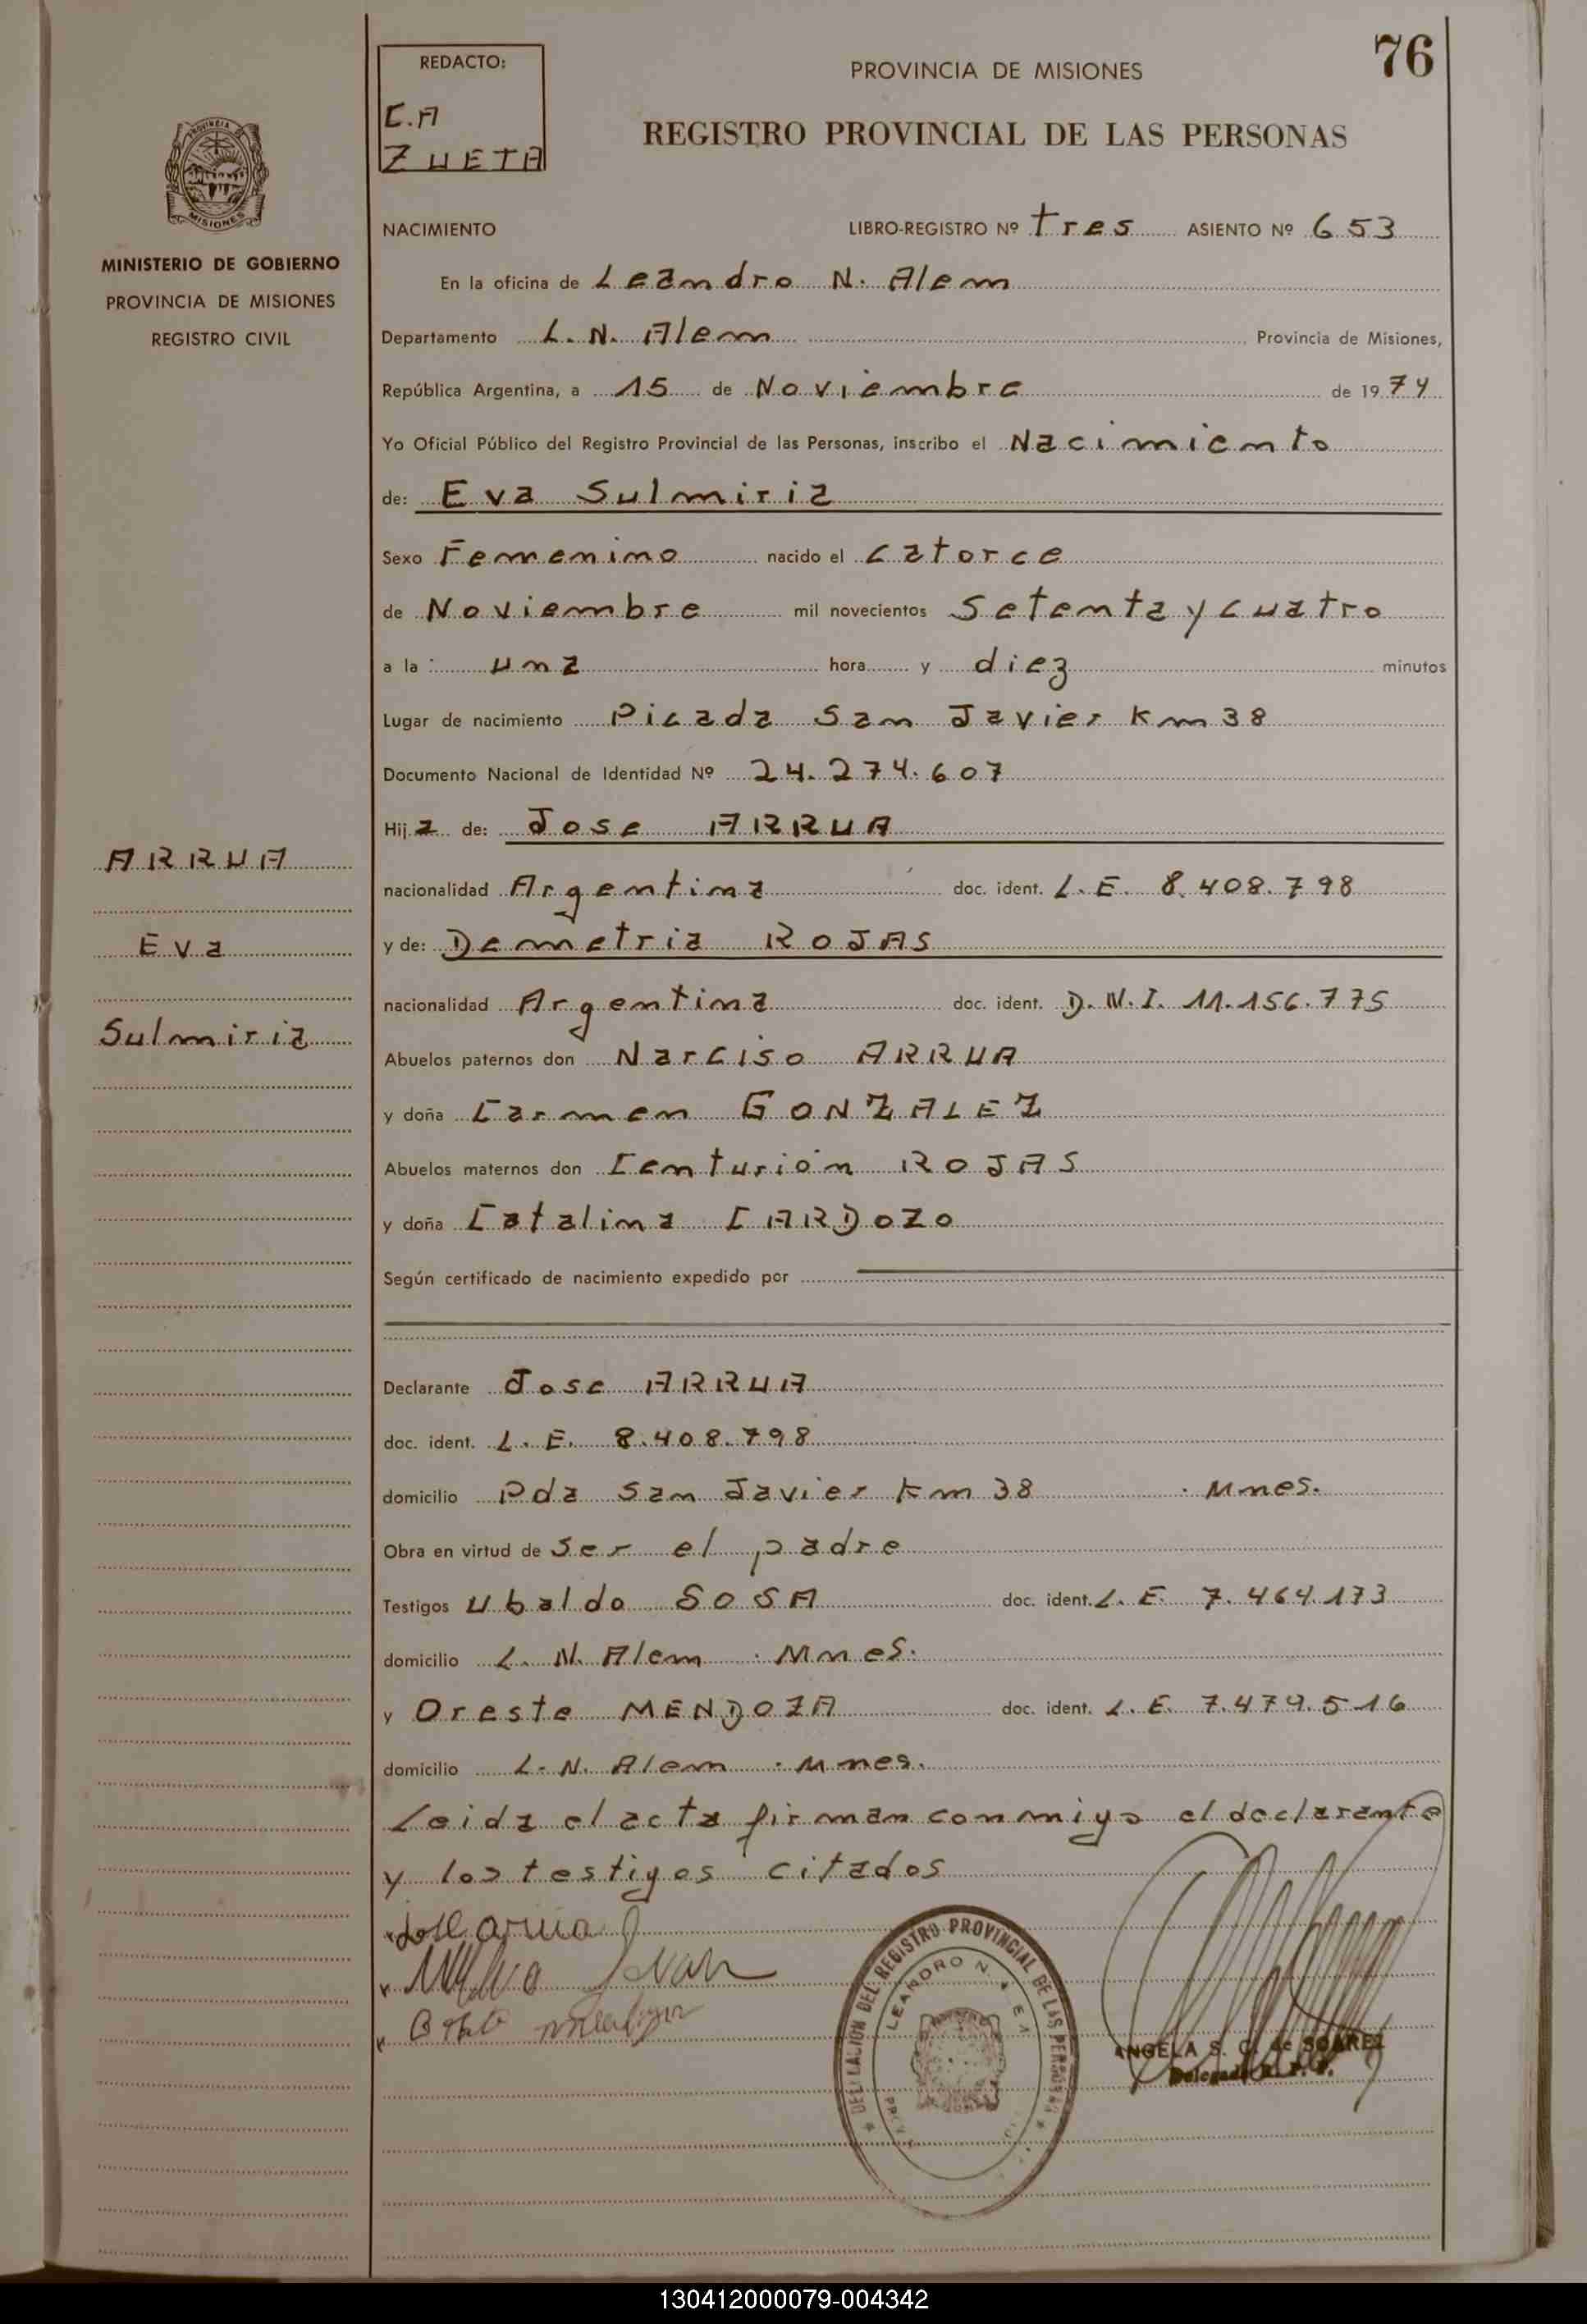 76
REDACTO:
C.A
ZUETA
PROVINCIA DE MISIONES
REGISTRO PROVINCIAL DE LAS PERSONAS
PROVINCIA DE
MISIONES
MINISTERIO DE GOBIERNO
PROVINCIA DE MISIONES
REGISTRO CIVIL
NACIMIENTO LIBRO-REGISTRO Nº tres ASIENTO Nº 653
En la oficina de Leandro N. Alem
Departamento L. N. Alem Provincia de Misiones,
República Argentina, a 15 de Noviembre de 1974
Yo Oficial Público del Registro Provincial de las Personas, inscribo el Nacimiento
de: Eva Sulmiria
Sexo Femenino nacido el catorce
de Noviembre mil novecientos Setenta y cuatro
a la : una hora y diez minutos
Lugar de nacimiento Picada San Javier Km 38
Documento Nacional de Identidad Nº 24.274.607
Hija de: Jose ARRUA
nacionalidad Argentina doc. ident. L.E. 8.408.798
y de: Demetria ROJAS
nacionalidad Argentina doc. ident. D.N.I. 11.156.775
Abuelos paternos don Narciso ARRUA
y doña Carmen GONZALEZ
Abuelos maternos don Centurión ROJAS
y doña Catalina CARDOZO
Según certificado de nacimiento expedido por
Declarante Jose ARRUA
doc. ident. L. E. 8.408.798
domicilio Pda San Javier Km 38 . Mnes.
Obra en virtud de Ser el padre
Testigos Ubaldo SOSA doc. ident. L. E. 7.464.173
domicilio L. N. Alem . Mnes.
y Oreste MENDOZA doc. ident. L. E. 7.479.516
domicilio L. N. Alem . Mnes.
Leida el acta firman conmigo el declarante
y los testigos citados
ARRUA
Eva
Sulmiria
Jose arrua
DELEGACION DEL REGISTRO PROVINCIAL DE LAS PERSONAS
LEANDRO N.
ANGELA S. C. de SOAREZ
Delegada R. P. P.
130412000079-004342